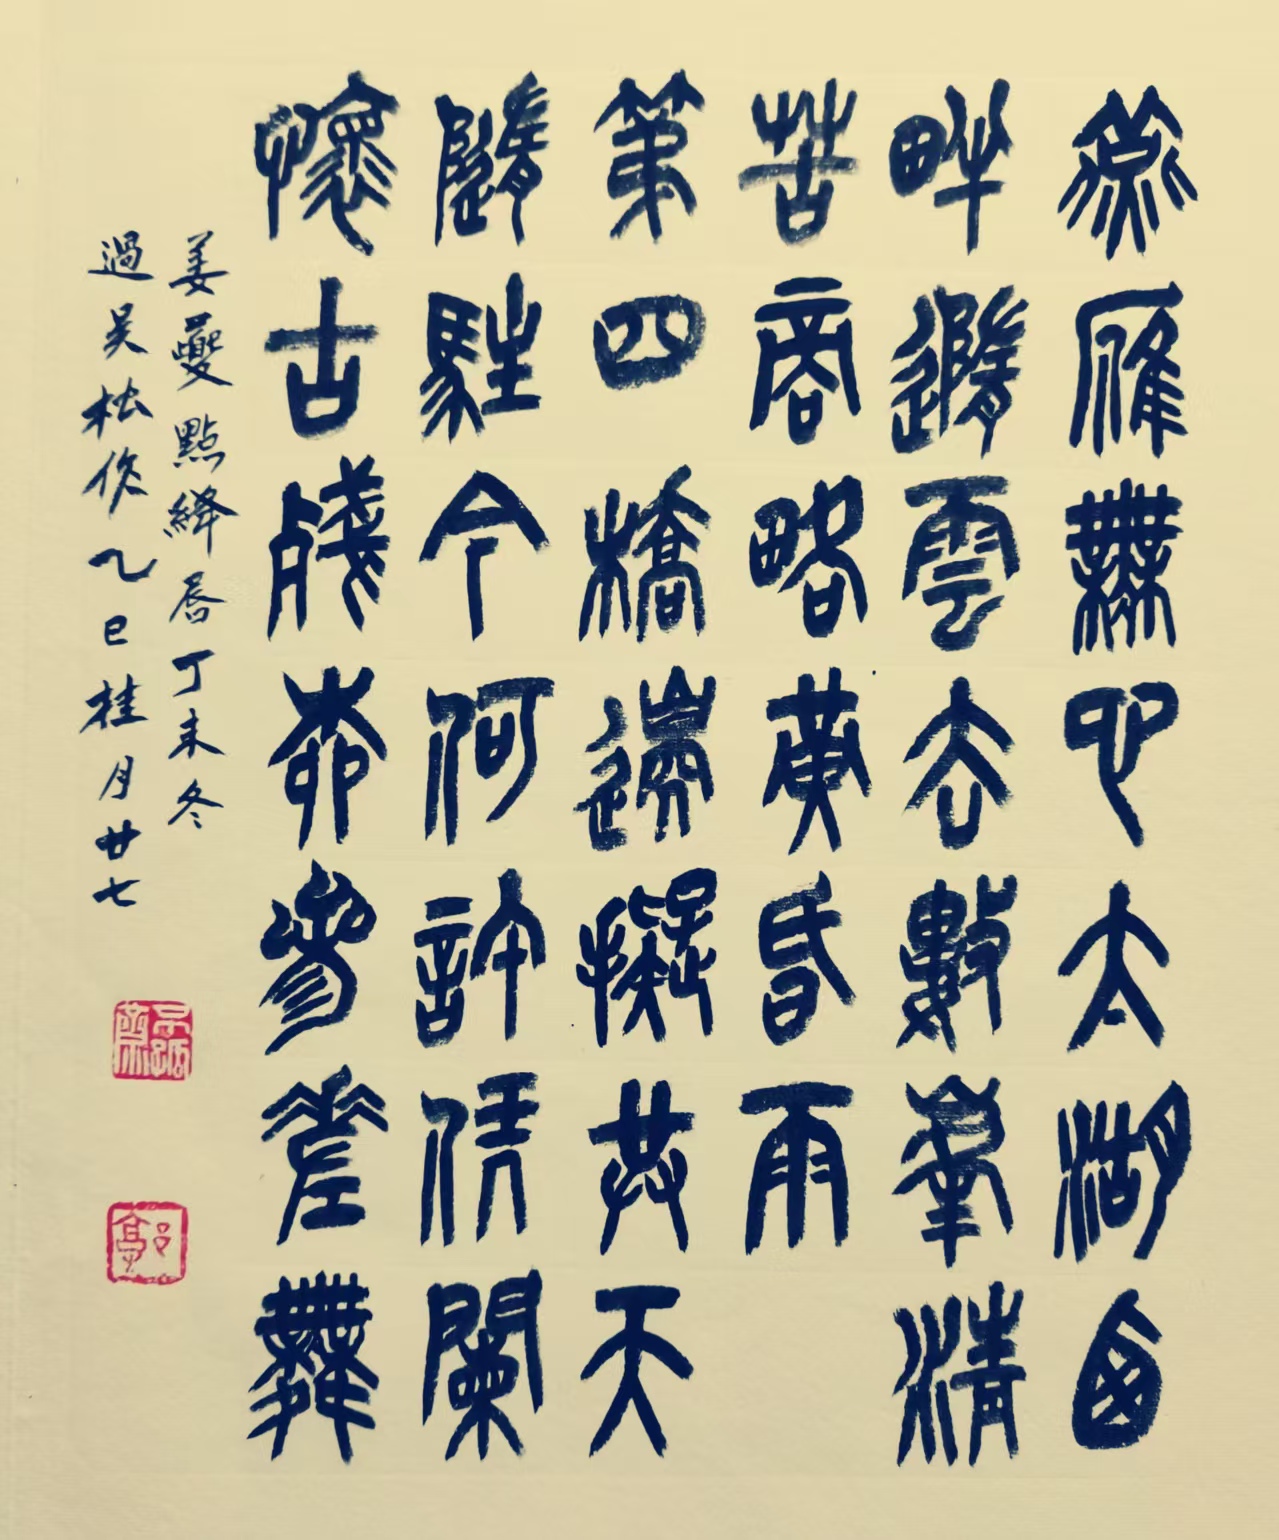 燕雁無心太湖西
畔隨雲去數峯清
苦商略黃昏雨
第四橋邊擬共天
隨駐今何許凭闌
懷古殘柳參差舞
姜夔點絳唇丁未冬
過吳松作乙巳桂月廿七